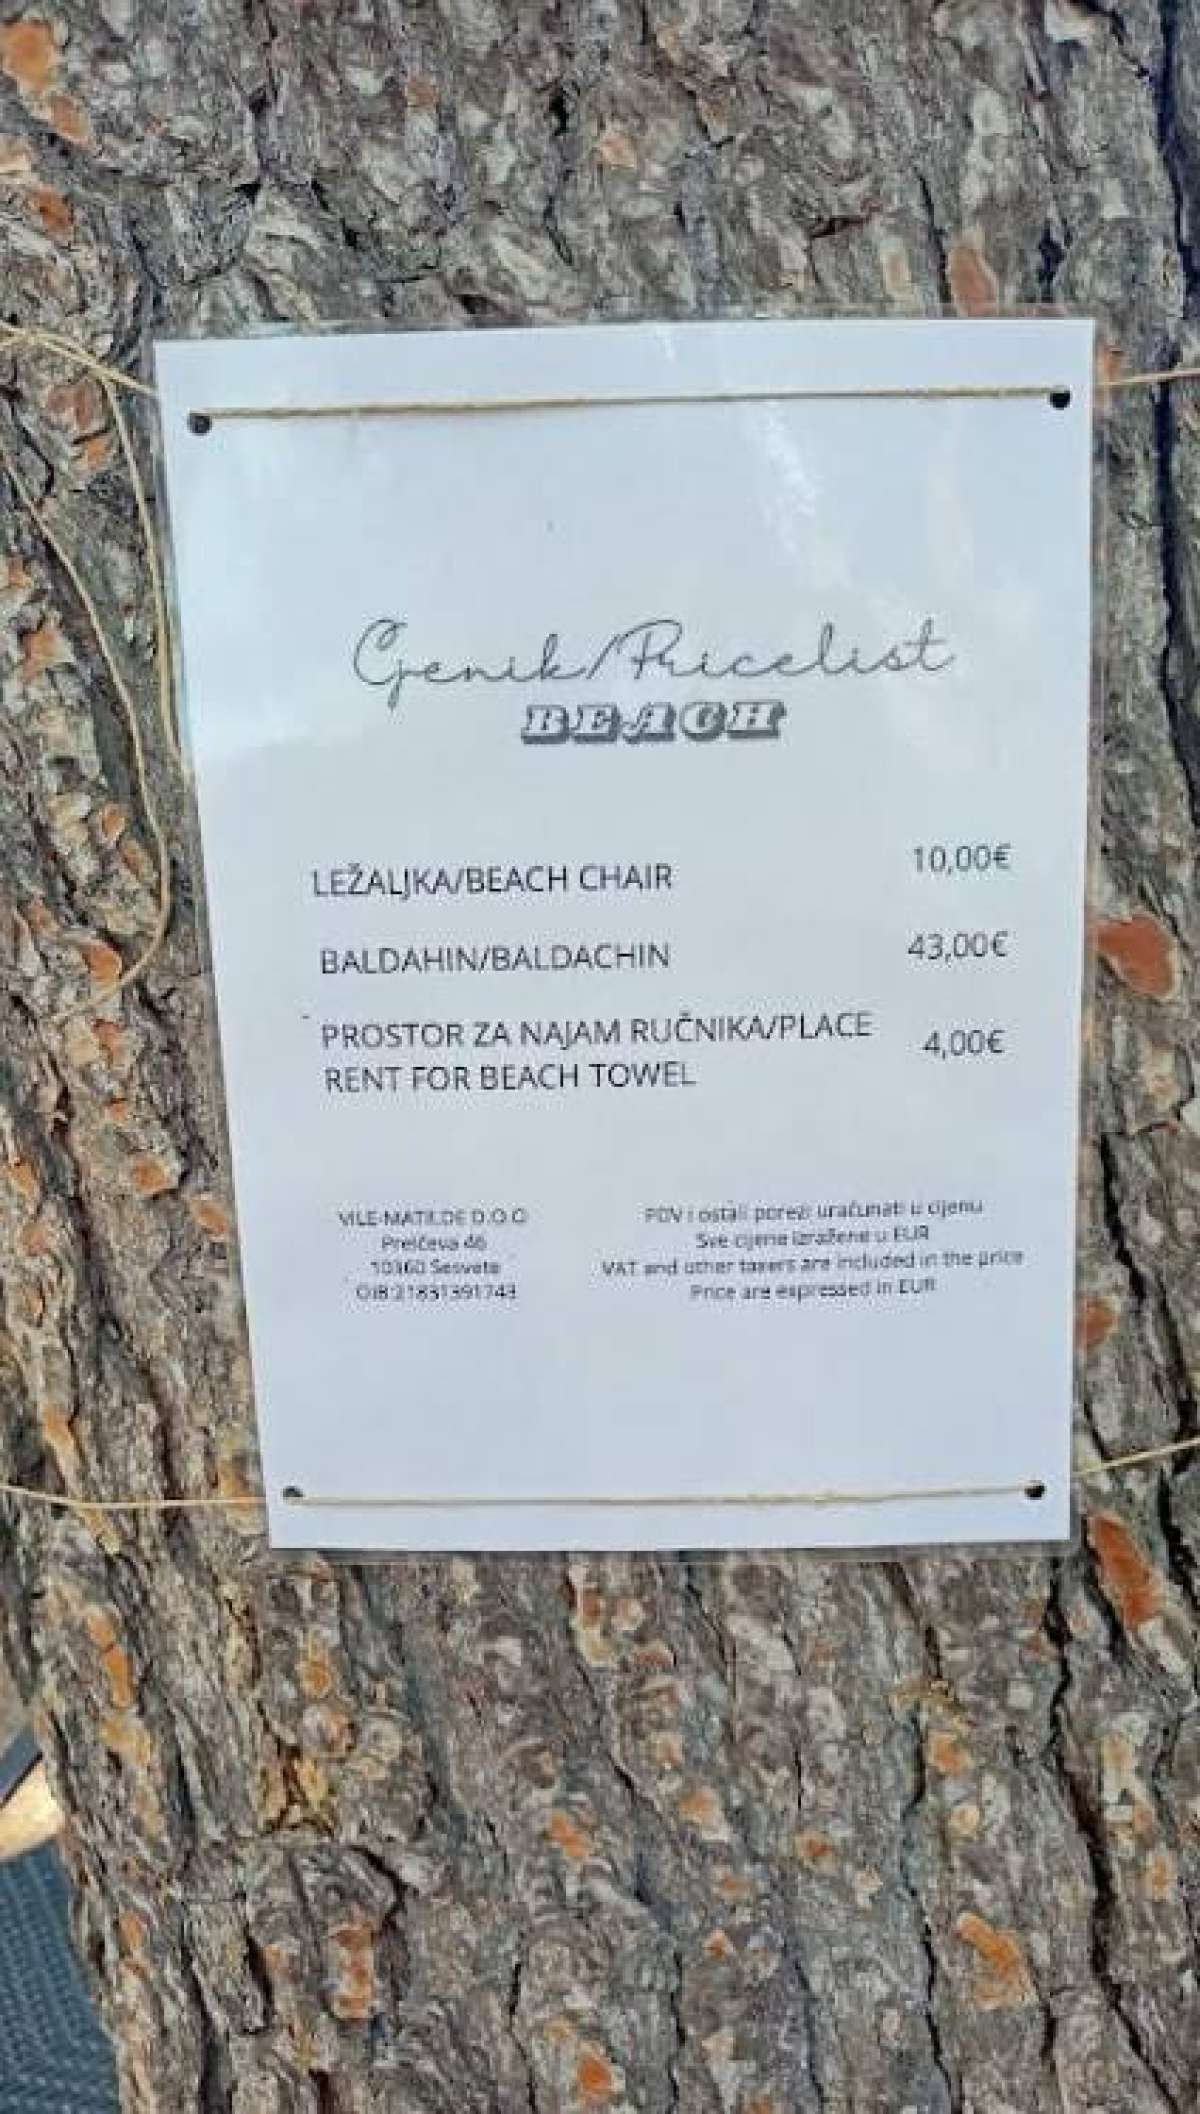 Cjenik/Pricelist
BEACH
LEŽALJKA/BEACH CHAIR 10,00€
BALDAHIN/BALDACHIN 43,00€
PROSTOR ZA NAJAM RUČNIKA/PLACE 4,00€
RENT FOR BEACH TOWEL
VILE-MATILDE D.O.O
Prelčeva 46
10360 Sesvete
OIB:21831391743
PDV i ostali porezi uračunati u cijenu
Sve cijene izražene u EUR
VAT and other taxers are included in the price
Price are expressed in EUR